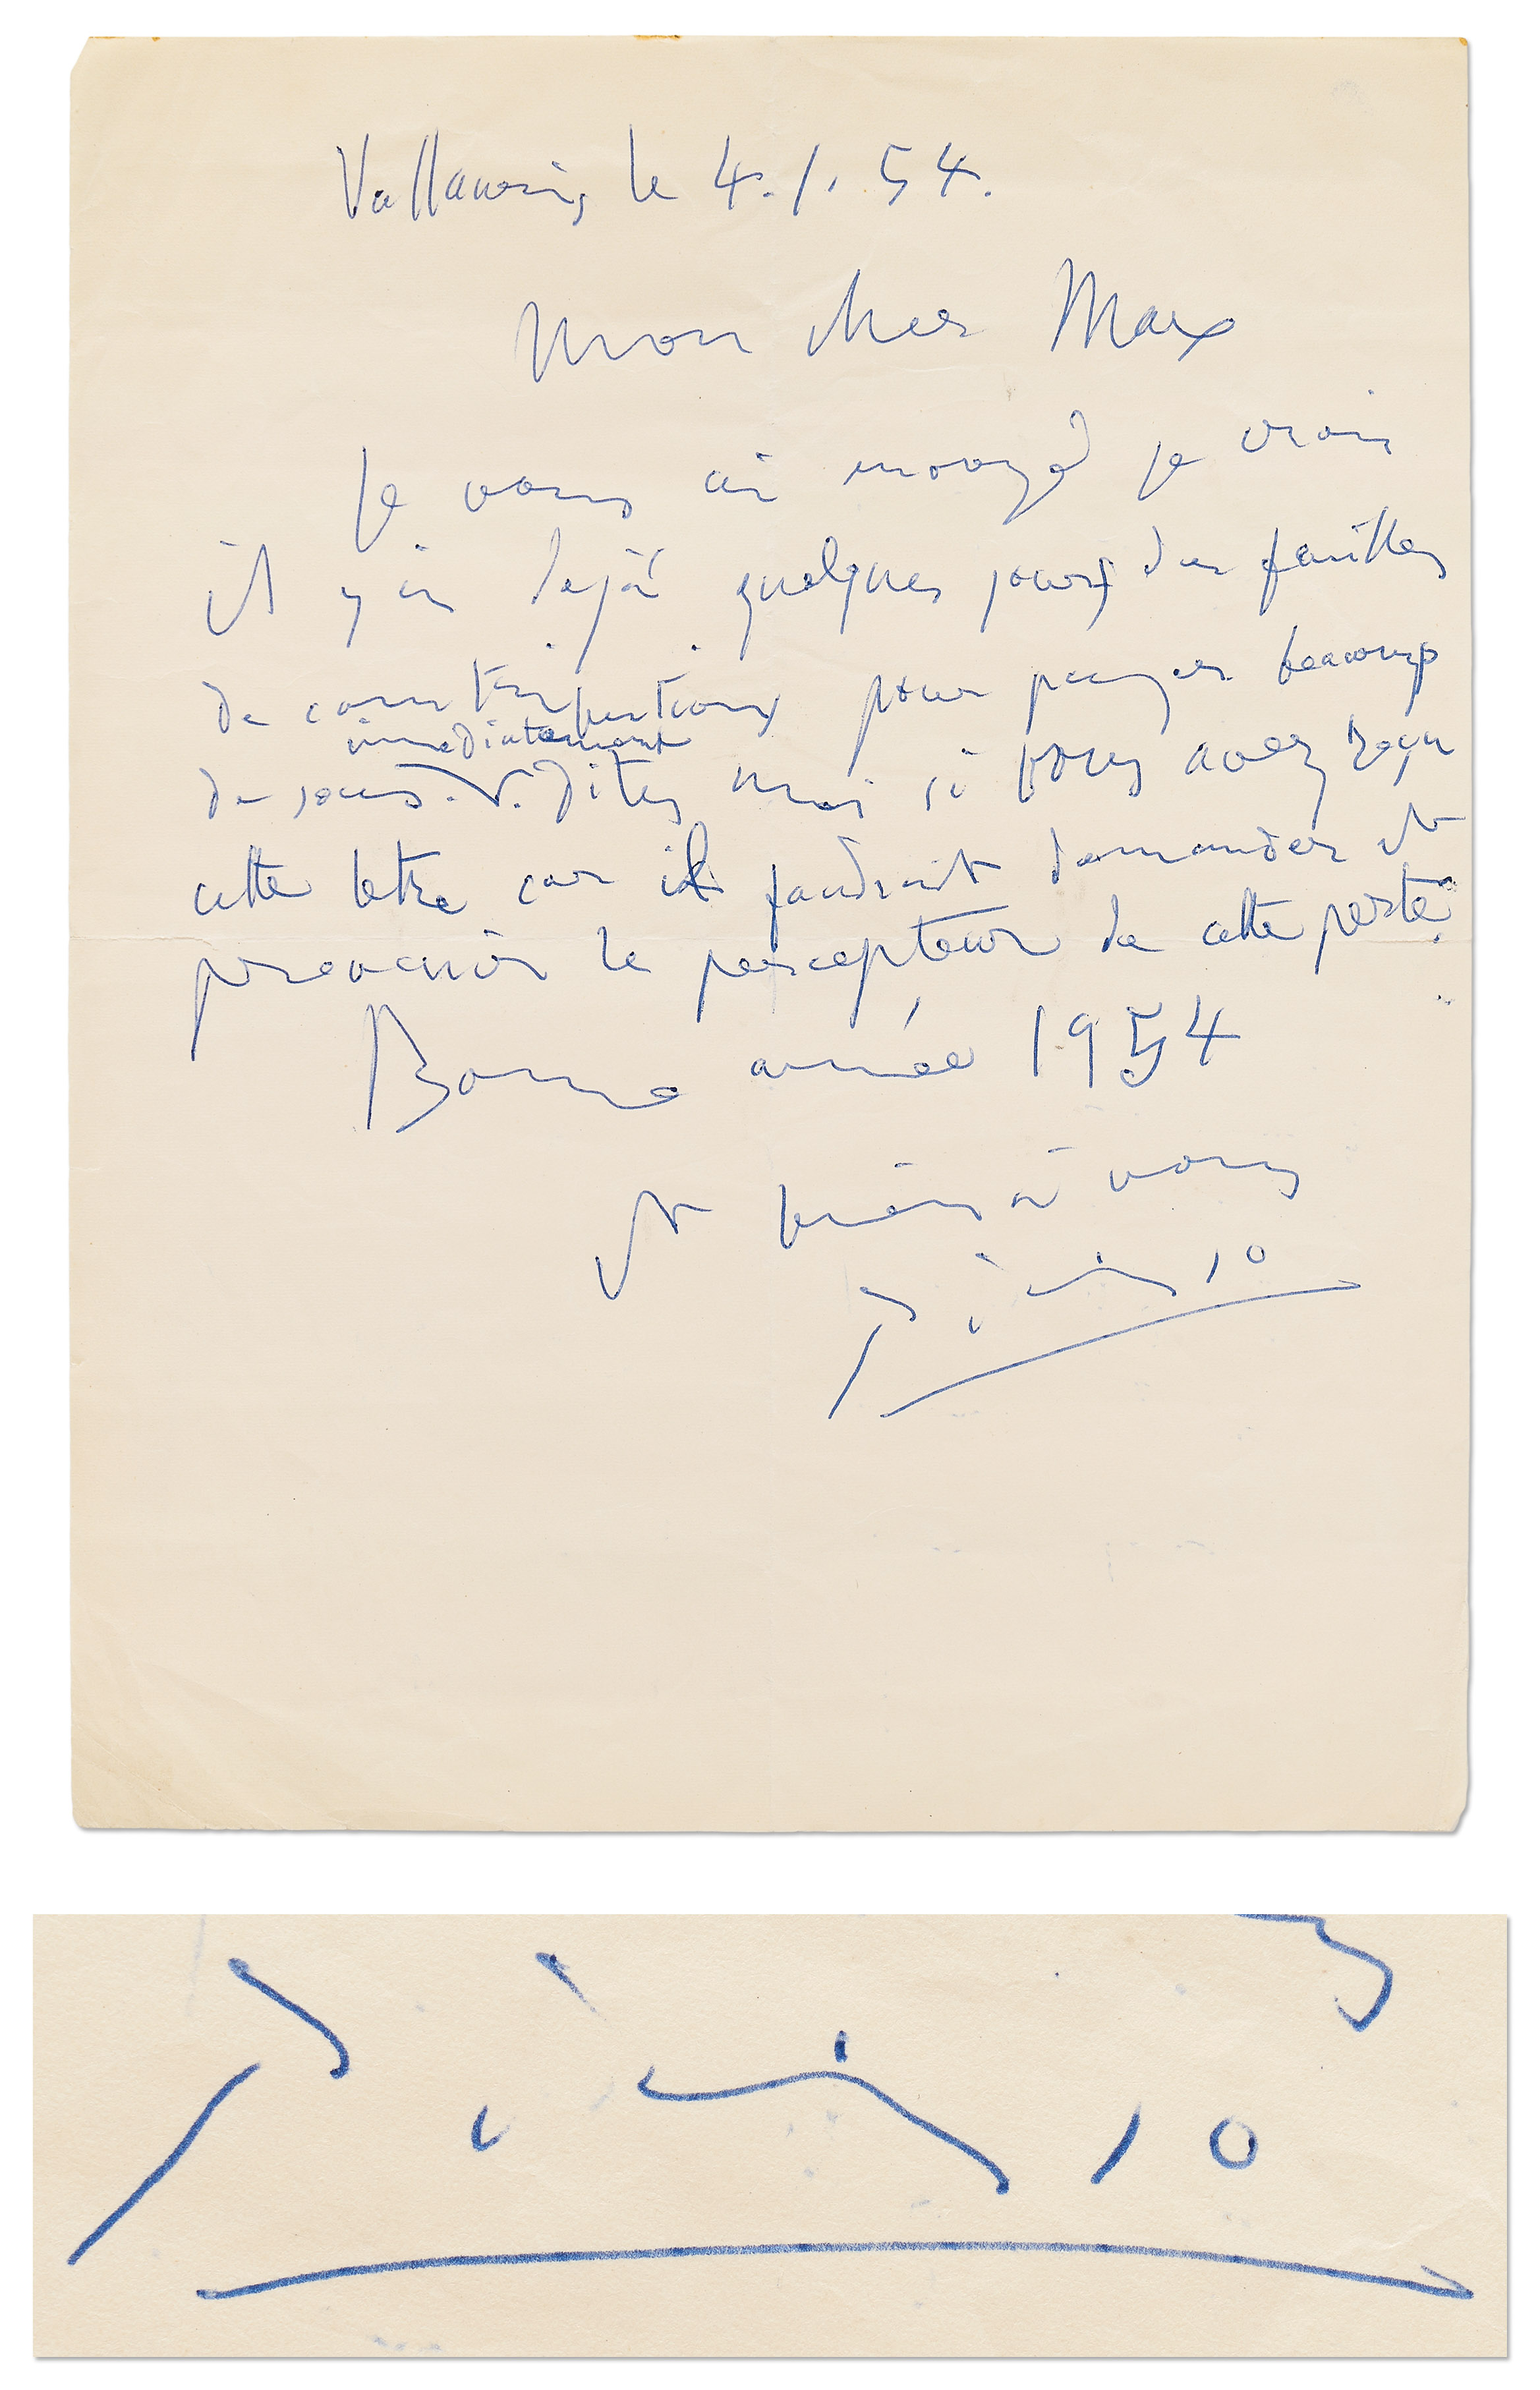 Vallauris le 4.1.54.
Mon cher Max
Je vous ai envoyé je crois
il y a dejà quelques jours des feuilles
de contributions pour payer beacoup
immediatement
de sous. V. Dites moi si vous avez reçu
cette letre car il faudrait demander et
prevenir le percepteur de cette perte.
Bonne année 1954
et bien à vous
Picasso
Picasso